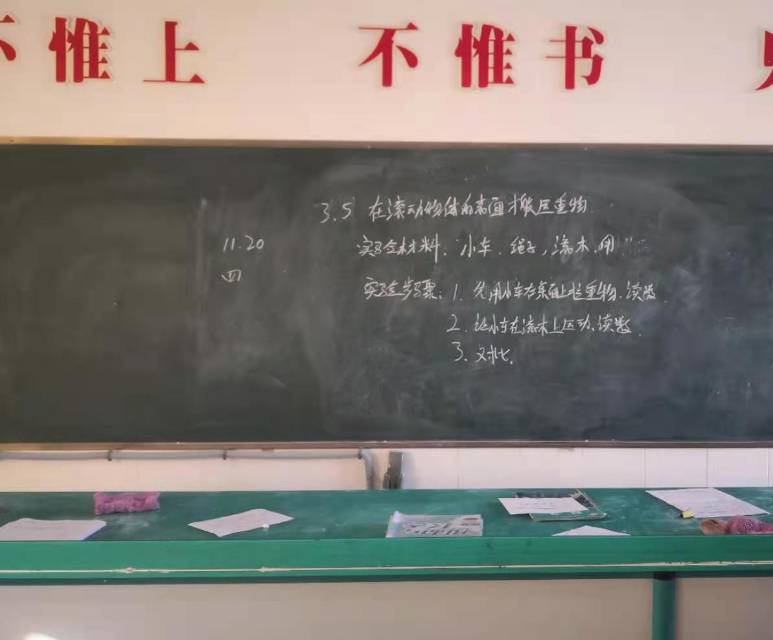 不惟上 不惟书
3.5 在滚动物体的表面搬运重物
11.20
四
实验材料: 小车、绳子,滚木,用
实验步骤: 1. 先用小车在桌面上拉重物、读数
2. 让小车在滚木上运动、读数
3. 对比.